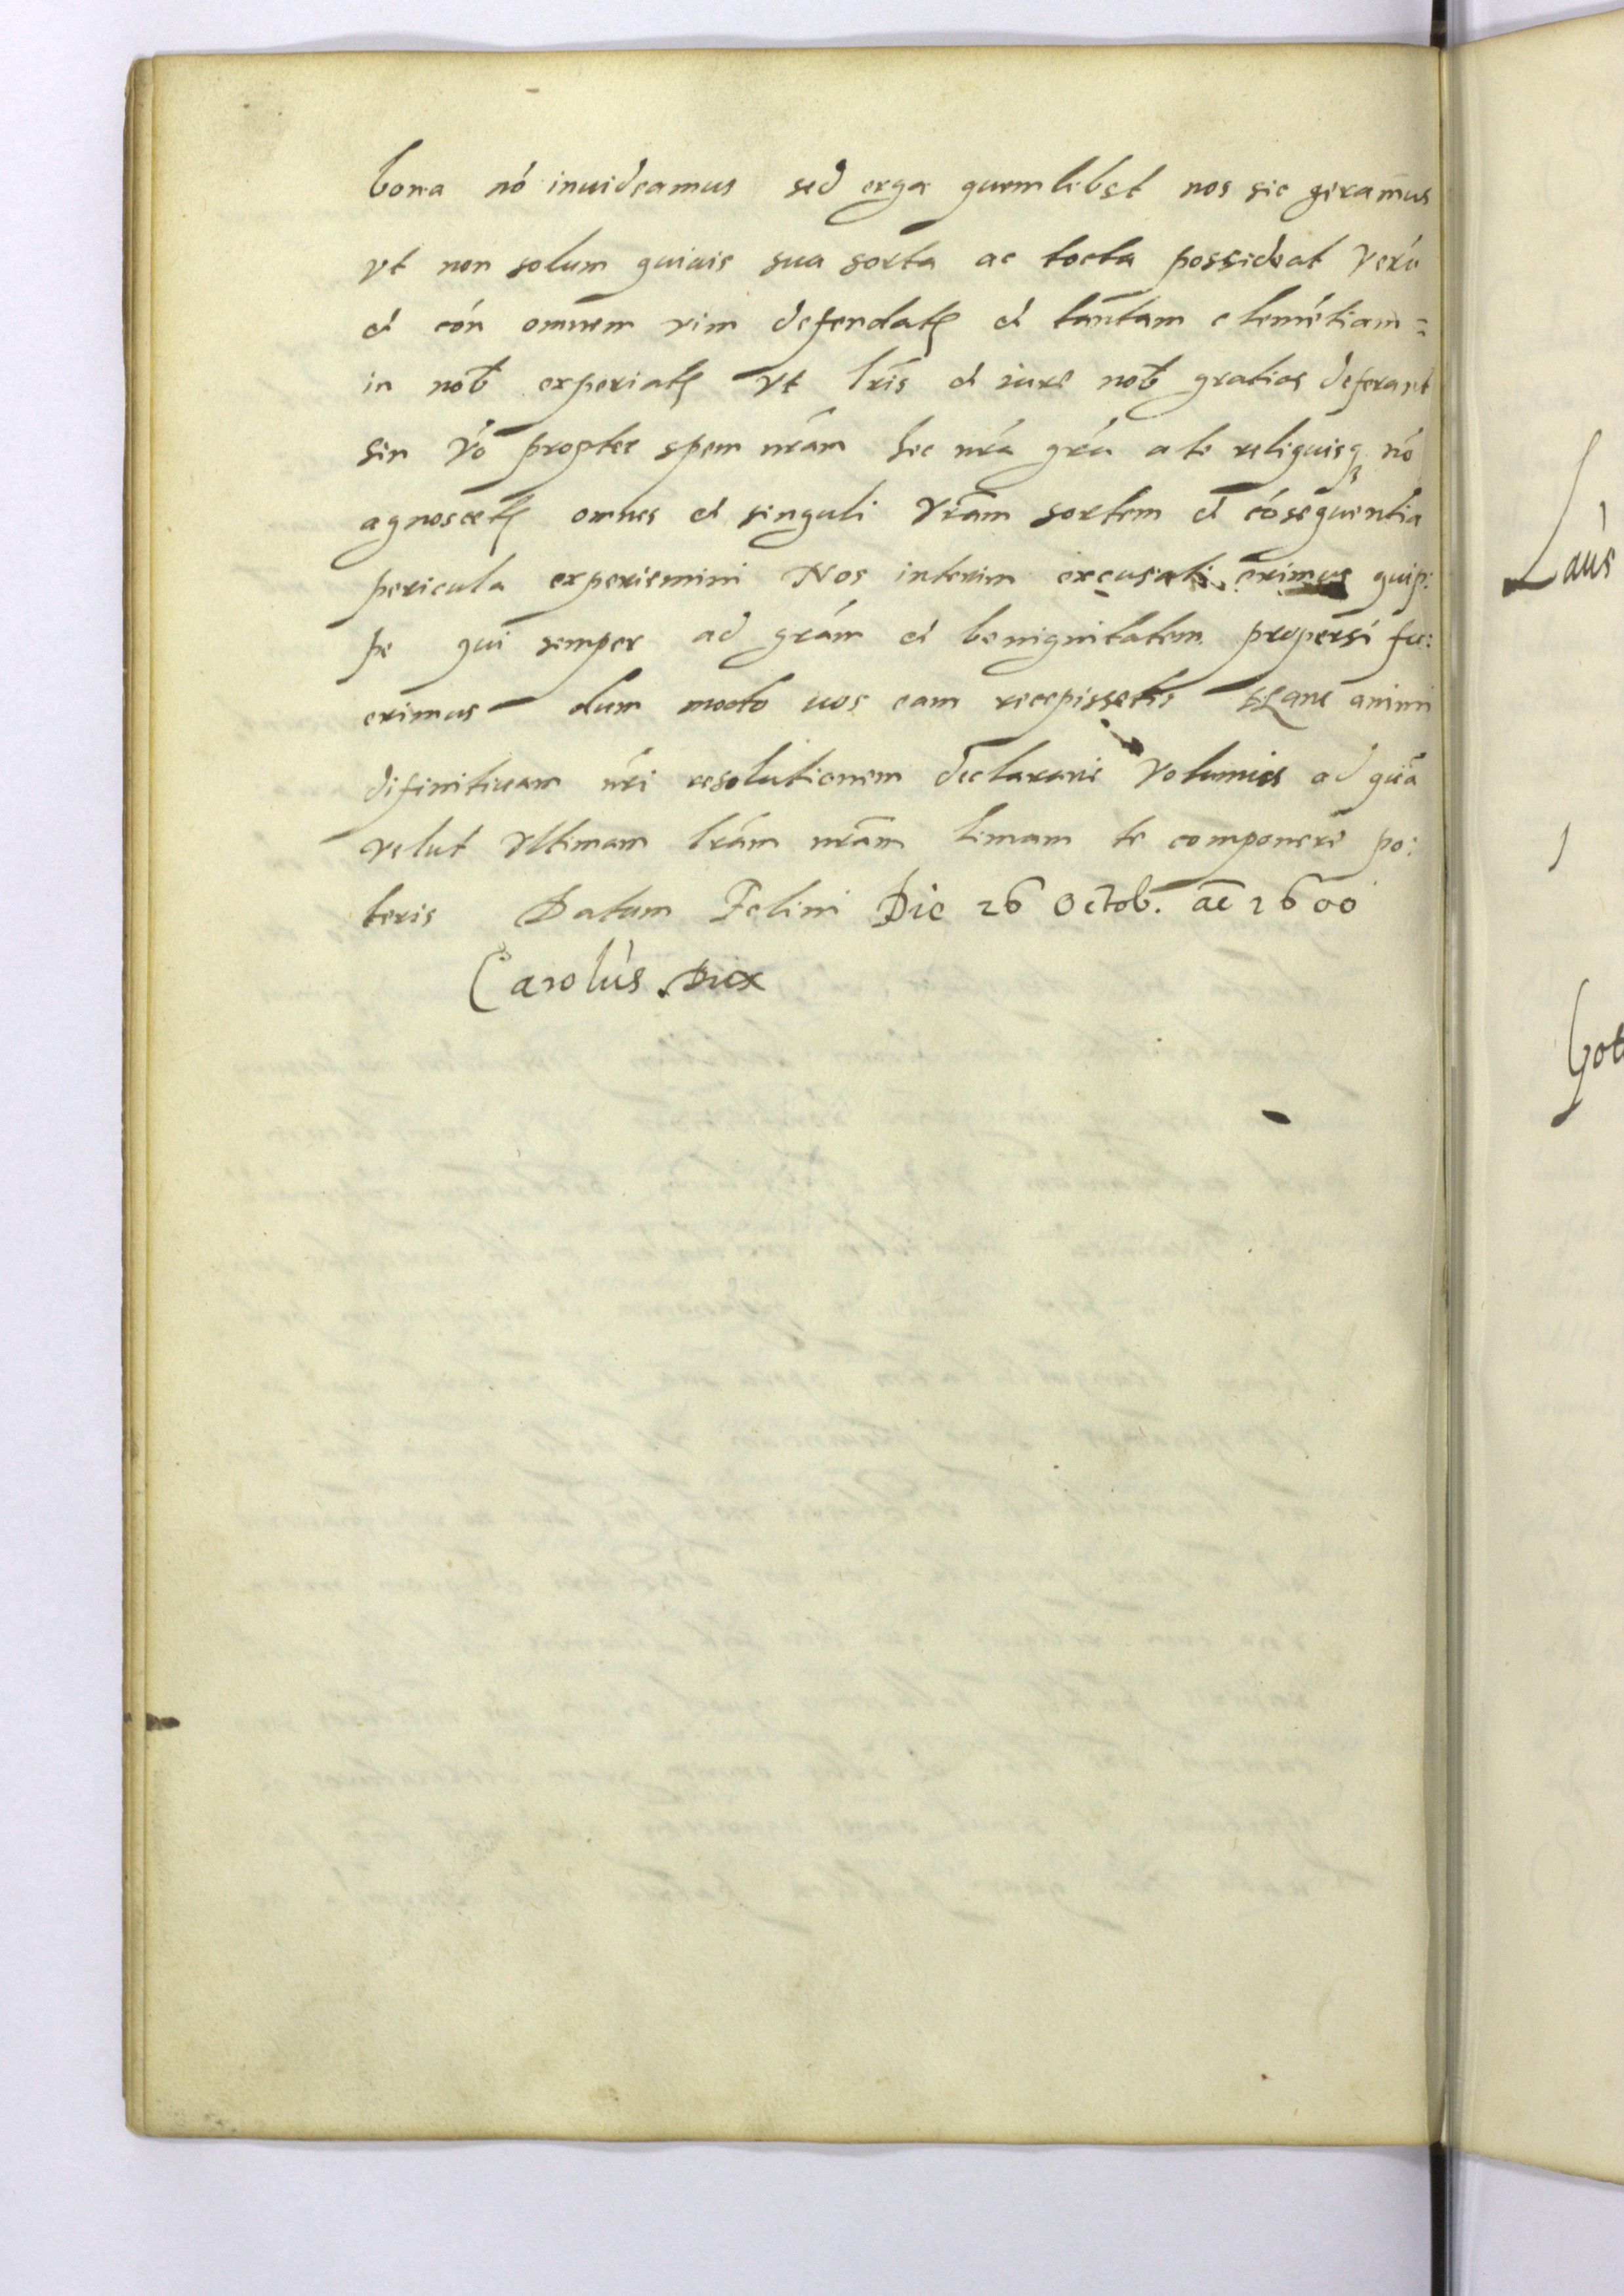 bona nó inuideamus sed erga quemlibet nos sic geram̄us
vt non solum quiuis sua sorta ac tecta possideat Verú
et cón omnem vim defendatꝭ et tan̄tam cleméntiam =
in nob̄ experiatꝭ Vt lr̄is et iure nob̄ gratias deferant
sin Vō propter spem nrám hec nrá grá a te reliquisqꝫ nó
agnoscetꝭ omnes et singuli Vrām sortem et cósequentia
pericula experiemini Nos interim excusati erimus quip:
pe qui semper ad grám et benignitatem propensi fu:
erimus dum modo uos eam recepissetis Hanc animi
difinitiuam nŕi resolutionem declarare Volumus ad quā
velut Vltimam lrám nrām limam te componere po:
teris Datum Felini Die 26 Octob. ae 1600
Carolus Dux
Laus
Got